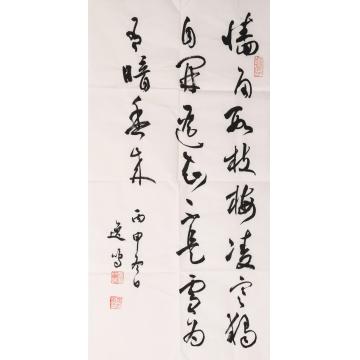 墙角数枝梅凌寒独
自开遥知不是雪为
有暗香来
丙申冬日
逸鸣